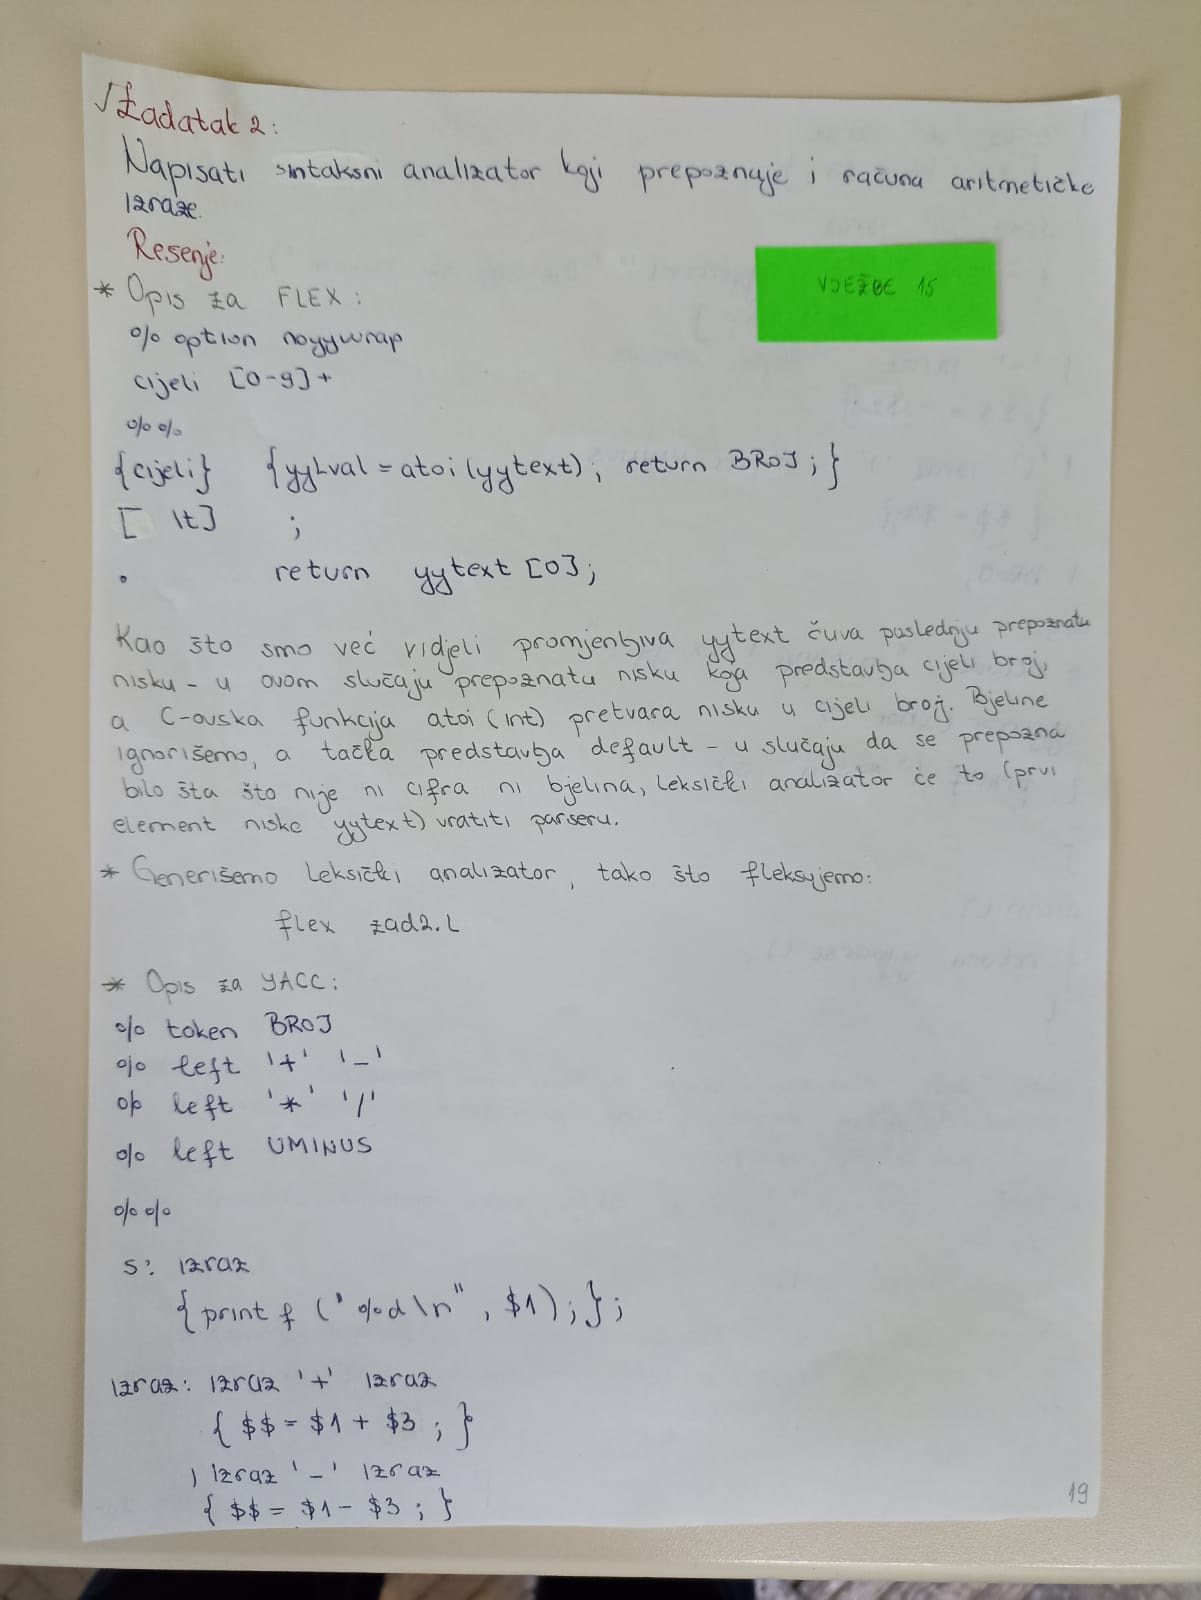 √Zadatak 2:
Napisati sintaksni analizator koji prepoznaje i računa aritmetičke
izraze.
Resenje:
VJEŽBE 15
* Opis za FLEX:
% option noyywrap
cijeli [0-9]+
%%
{cijeli} {yylval = atoi (yytext); return BROJ;}
[ \t] ;
. return yytext [0];
Kao što smo već vidjeli promjenljiva yytext čuva poslednju prepoznatu
nisku - u ovom slučaju prepoznatu nisku koja predstavlja cijeli broj,
a C-ovska funkcija atoi (int) pretvara nisku u cijeli broj. Bjeline
ignorišemo, a tačka predstavlja default - u slučaju da se prepozna
bilo šta što nije ni cifra ni bjelina, leksički analizator će to (prvi
element niske yytext) vratiti parseru.
* Generišemo leksički analizator, tako što fleksujemo:
flex zad2.l
* Opis za YACC:
% token BROJ
% left '+' '-'
% left '*' '/'
% left UMINUS
%%
s: izraz
{printf ("%d\n", $1);};
izraz: izraz '+' izraz
{ $$ = $1 + $3 ; }
| izraz '-' izraz
{ $$ = $1 - $3 ; }
19